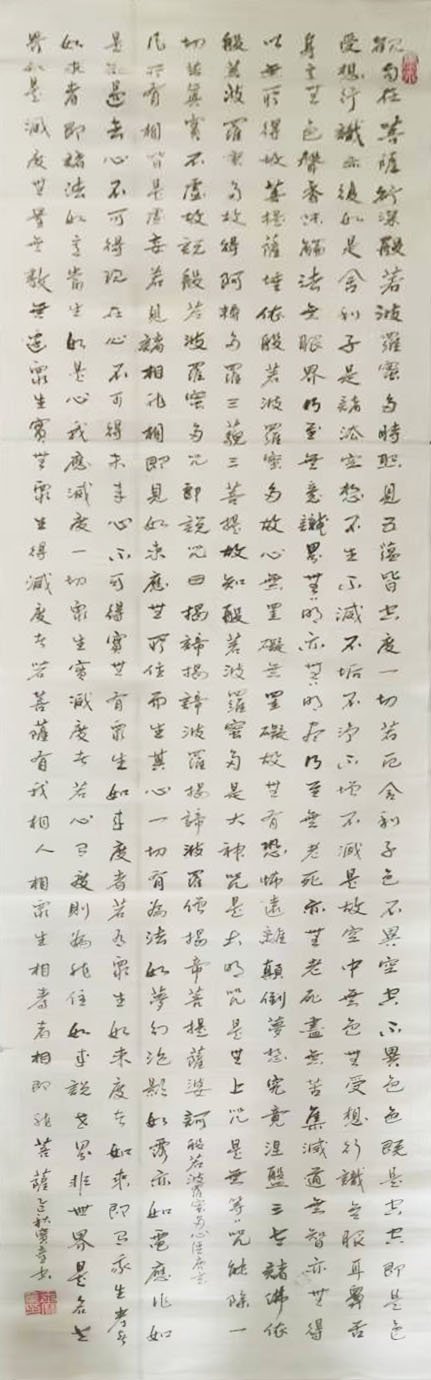 观自在菩萨行深般若波羅蜜多時照見五蕴皆空度一切苦厄舍利子色不異空空不異色色既是空空即是色
受想行識亦複如是舍利子是諸法空想不生不滅不垢不淨不增不減是故空中無色無受想行識無眼耳鼻舌
身意無色聲香味觸法無眼界乃至無意識界無無明亦無無明盡乃至無老死亦無老死盡無苦集滅道無智亦無得
以無所得故菩提薩埵依般若波羅蜜多故心無罣礙無罣礙故無有恐怖遠離顛倒夢想究竟涅盤三世諸佛依
般若波羅蜜多故得阿耨多羅三藐三菩提故知般若波羅蜜多是大神咒是大明咒是無上咒是無等等咒能除一
切苦真實不虛故說般若波羅蜜多咒即說咒曰揭諦揭諦波羅揭諦波羅僧揭帝菩提薩婆訶 般若波羅蜜多心經
凡所有相皆是虛妄若見諸相非相即見如來應無所住而生其心一切有為法如夢幻泡影如露亦如電應作如
是觀過去心不可得現在心不可得未來心不可得實無有眾生如來度者若有眾生如來度者如來即有我生者
如來者即諸法如意眾生如是心我應滅度一切眾生實滅度者若心有度則為非住如來說世界非世界是名世
界如是滅度無量無數無邊眾生實無眾生得滅度者若菩薩有我相人相眾生相壽者相即非菩薩 乙巳秋